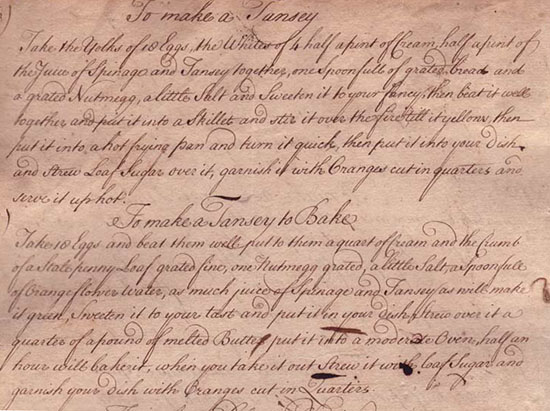 To make a Tansey
Take the Yolks of 18 Eggs, the Whites of 4 half a pint of Cream, half a pint of
the Juice of Spinage and Tansey together, one Spoonfull of grated bread and
a grated Nutmegg, a little Salt and Sweeten it to your fancy, then beat it well
together and put it into a Skillet and stir it over the fire till it yellows, then
put it into a hot frying pan and turn it quick, then put it into your dish
and Strew Loaf Sugar over it, garnish it with Oranges cut in quarters and
serve it up hot.
To make a Tansey to Bake
Take 18 Eggs and beat them well put to them a quart of Cream and the Crumb
of a Stale penny Loaf grated fine, one Nutmegg grated, a little Salt, a Spoonfull
of Orangeflower Water, as much juice of Spinage and Tansey as will make
it green, Sweeten it to your tast and put it in your dish, Strew over it a
quarter of a pound of melted Butter put it into a moderate Oven, half an
hour will bake it, when you take it out Strew it with loaf Sugar and
garnish your dish with Oranges cut in Quarters.